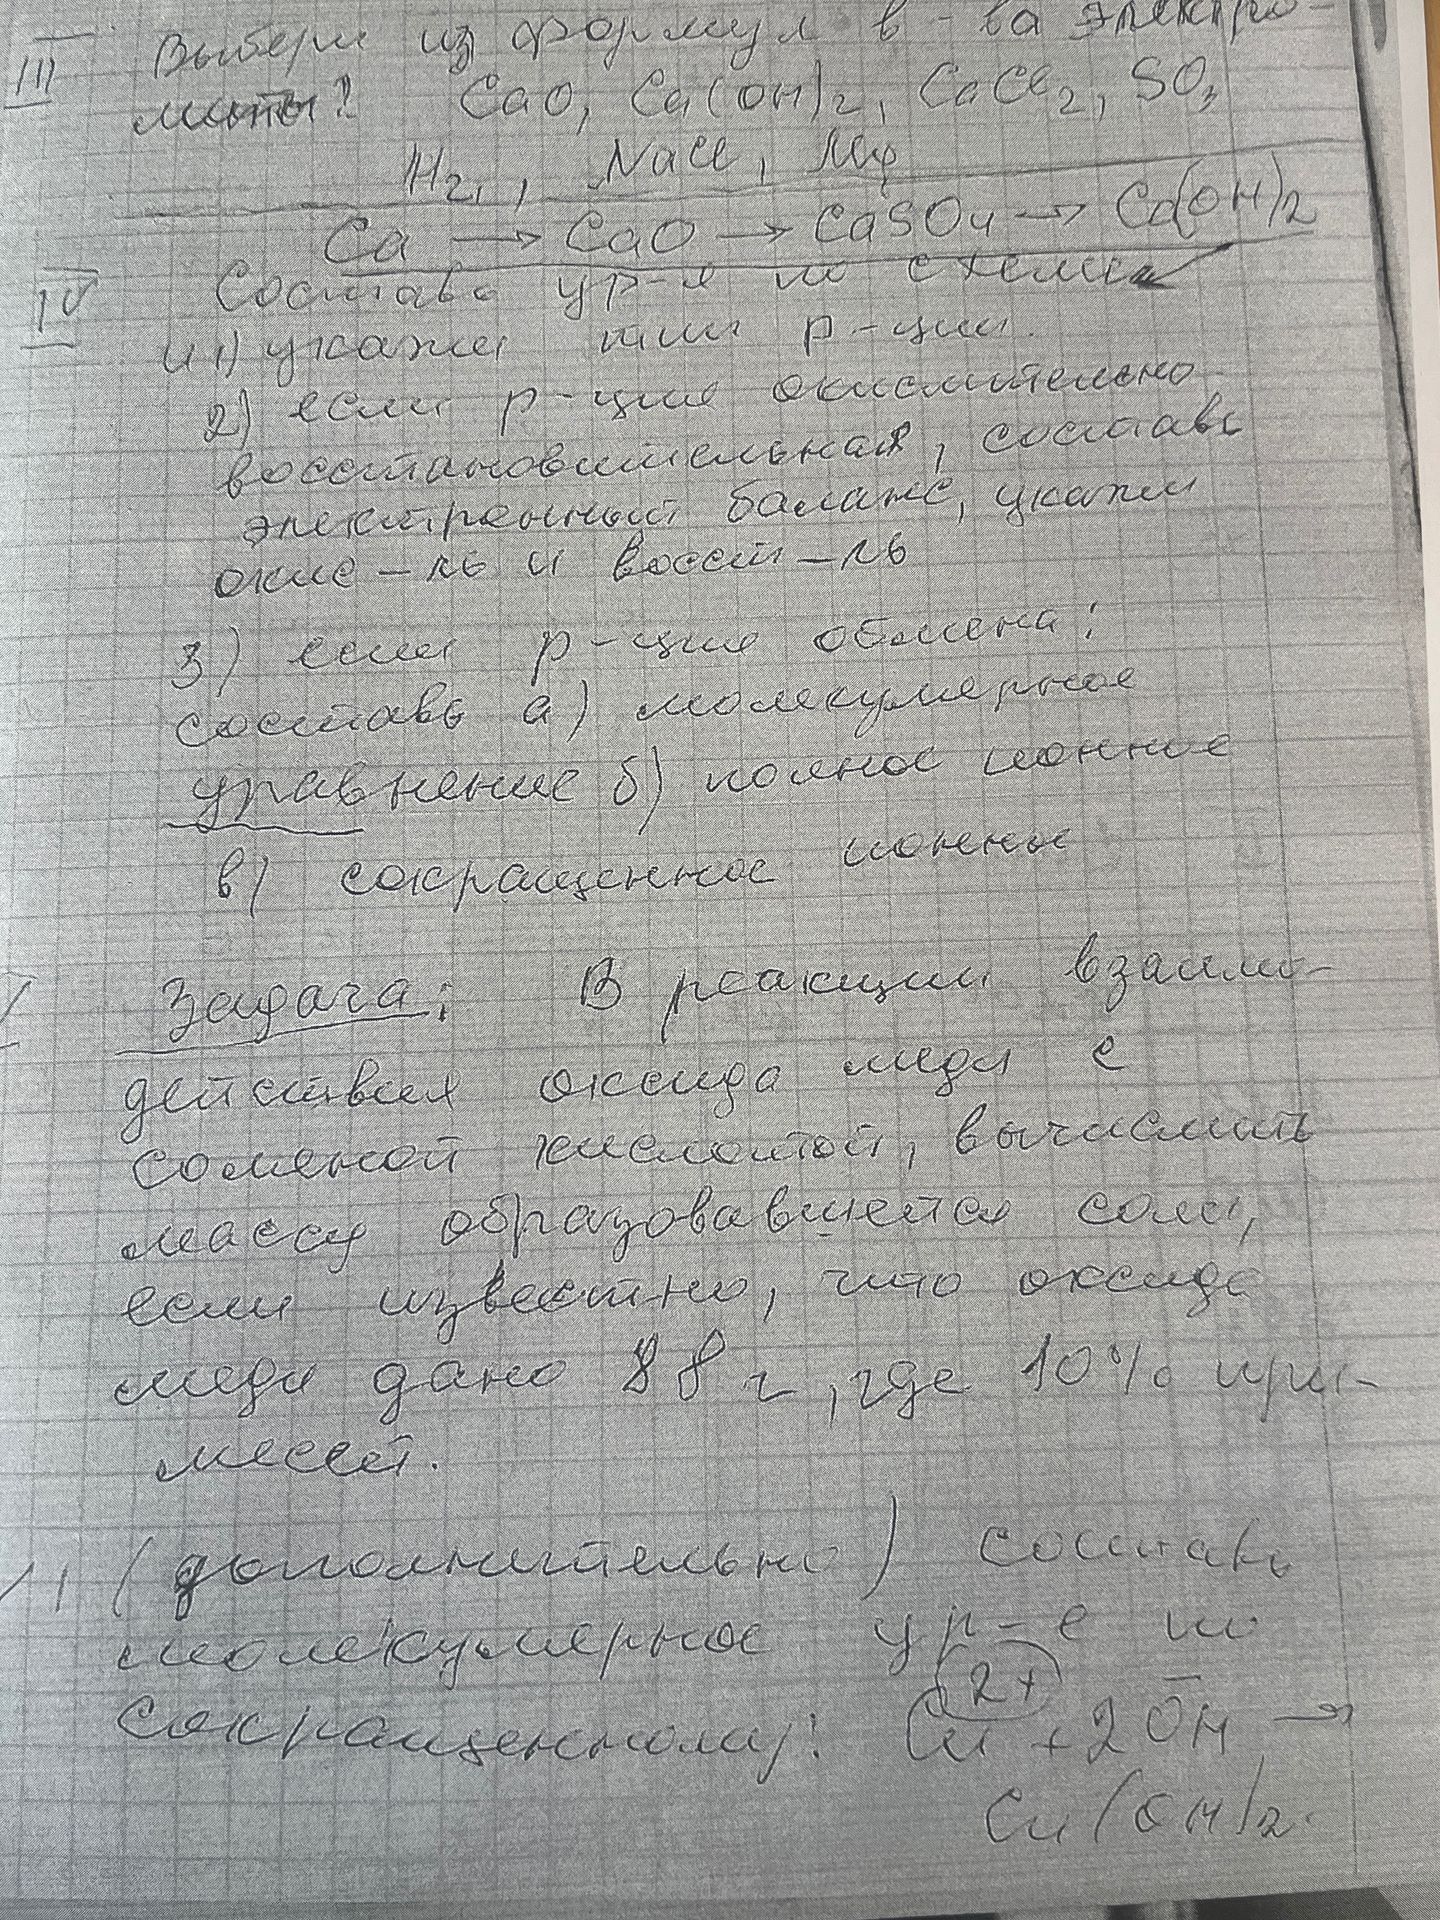 III Выбери из формул в-ва электро-
литы? CaO, Ca(OH)2, CaCl2, SO3
H2, , NaCl, Mg
Ca → CaO → CaSO4 → Ca(OH)2
IV Составь ур-я по схеме
и 1) укажи тип р-ции.
2) если р-ция окислительно
восстановительная, составь
электронный баланс, укажи
окис-ль и восст-ль
3) если р-ция обмена:
составь а) молекулярное
уравнение б) полное ионное
в) сокращенное ионные
Задача: В реакции взаимо-
действия оксида меди с
соляной кислотой, вычислить
массу образовавшейся соли,
если известно, что оксида
меди дано 88 г, где 10% при-
месей.
(дополнительно) составь
молекулярное ур-е по
сокращенному: Cu2+ + 2OH- →
Cu(OH)2.